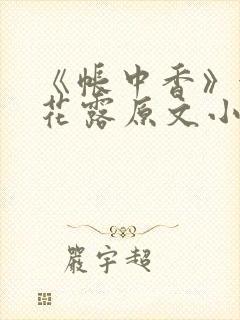 《帐中香》
花露原文小
严宇超